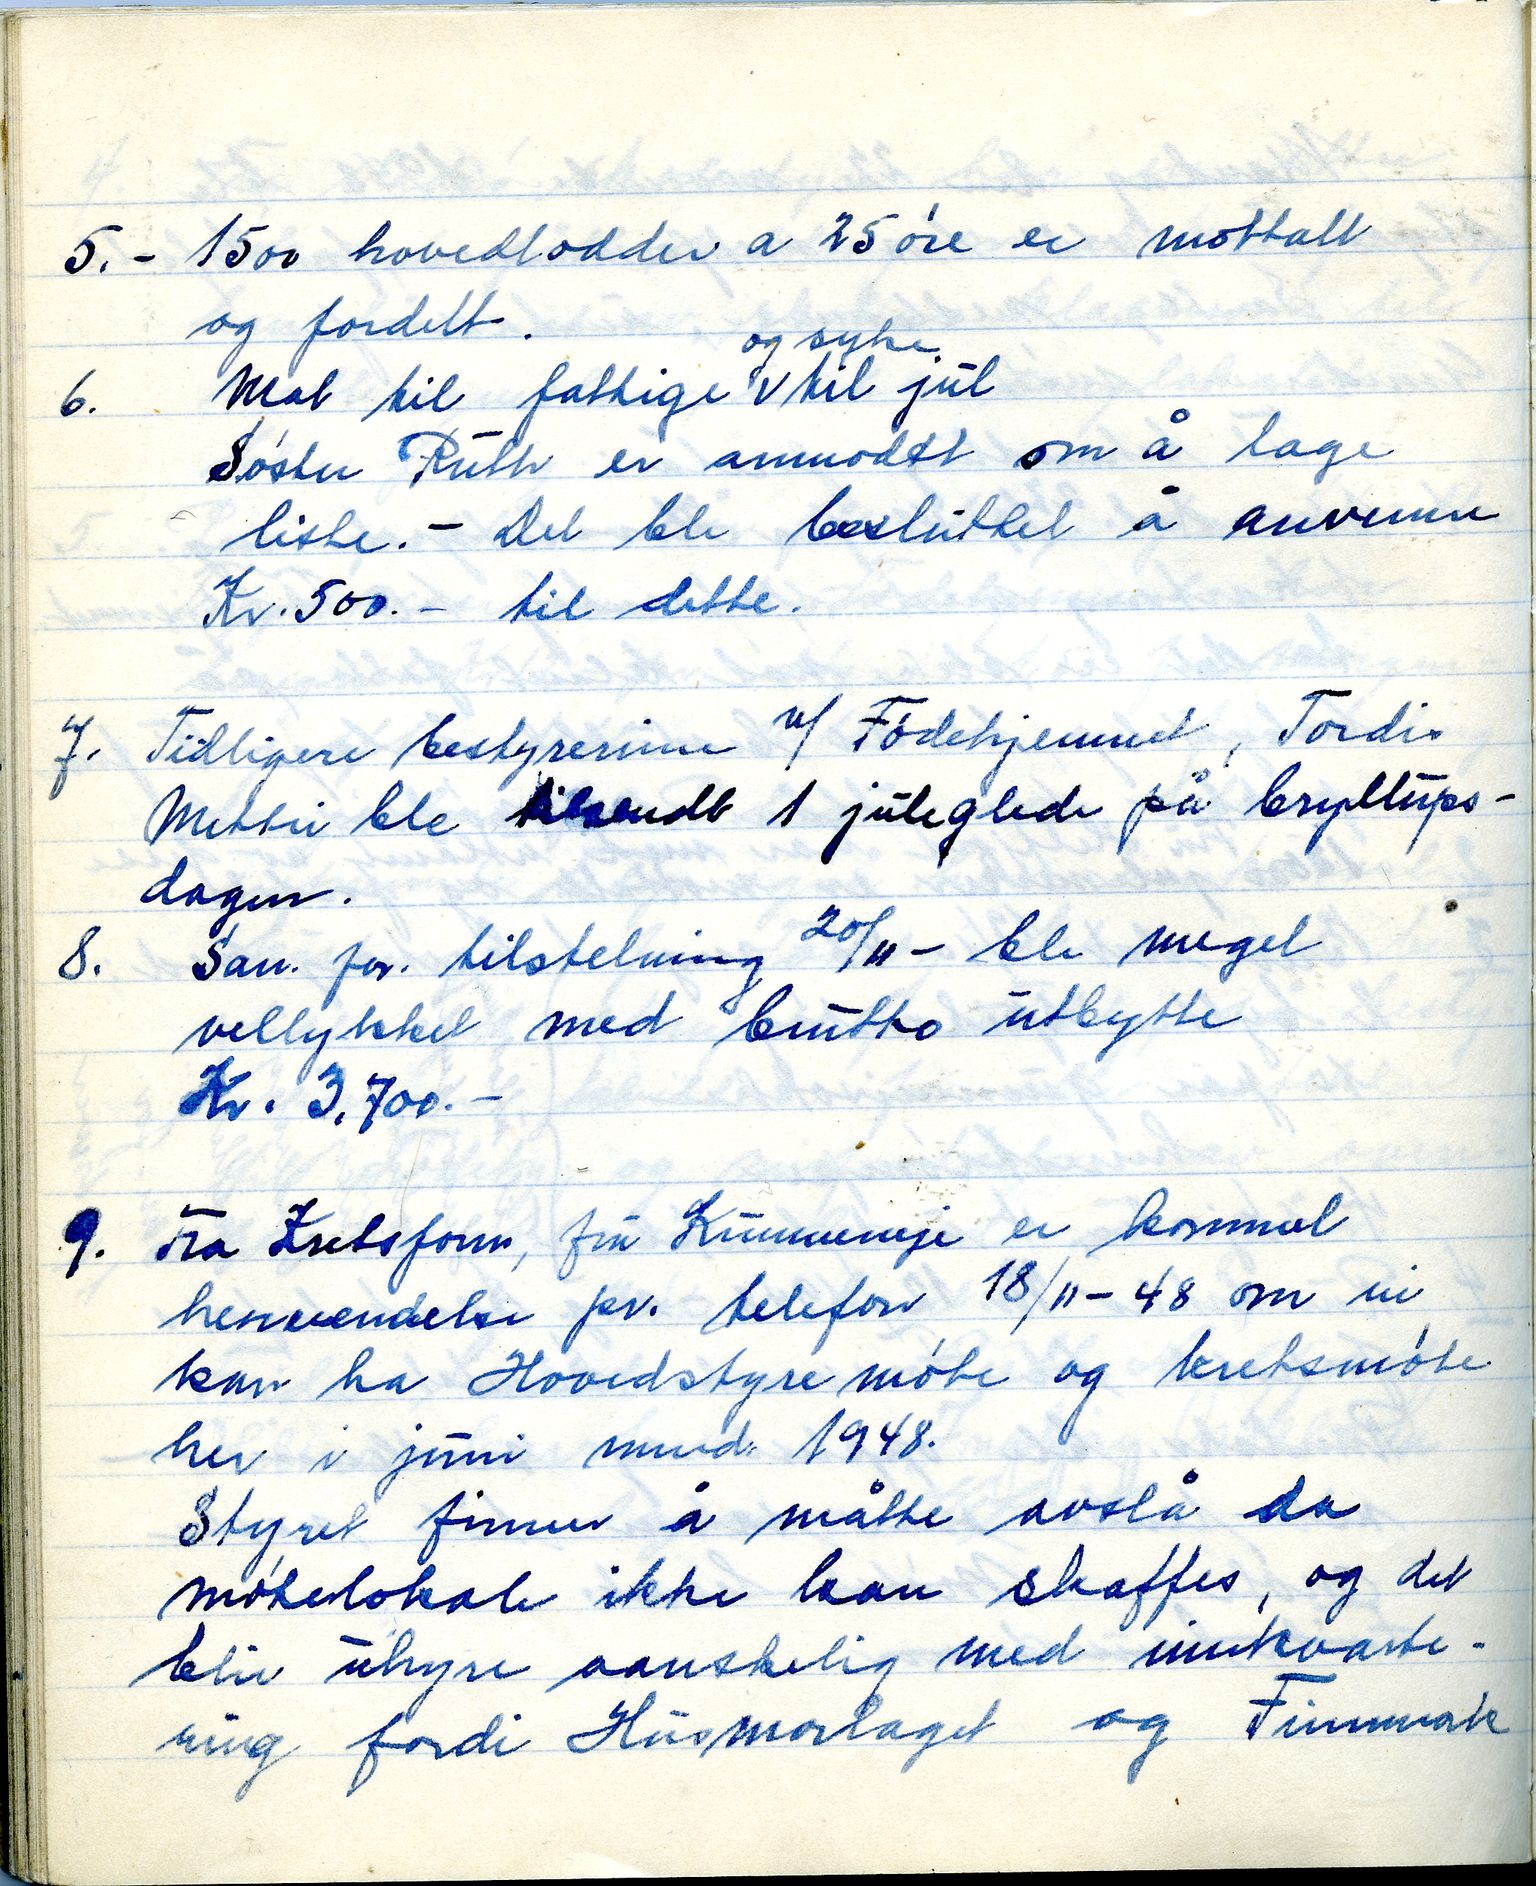 5.- 1500 hovedlodder a 25 öre er mottatt
og fordelt.
6. Mat til fattige og syke til jul
Søster Ruth er anmodet om å lage
liste. - Det ble besluttet å anvenne
Kr. 500.- til dette.
7. Tidligere bestyrerinne v/ Födehjemmet, Tordis
ble tilsendt 1 juleglede på bryllups-
dagen.
8. San. for. tilstelning 20/11- ble meget
vellykket med brutto utbytte
Kr. 3,700.-
9. Fra Kretsform, fru Kummeneje er kommet
henvendelse pr. telefon 18/11-48 om vi
kan ha Hovedstyremöte og kretsmöte
her i juni mnd. 1948.
Styret finner å måtte avslå da
mötelokale ikke kan skaffes, og det
blir uhyre vanskelig med innkvarte-
ring fordi Husmorlaget og Finnmark